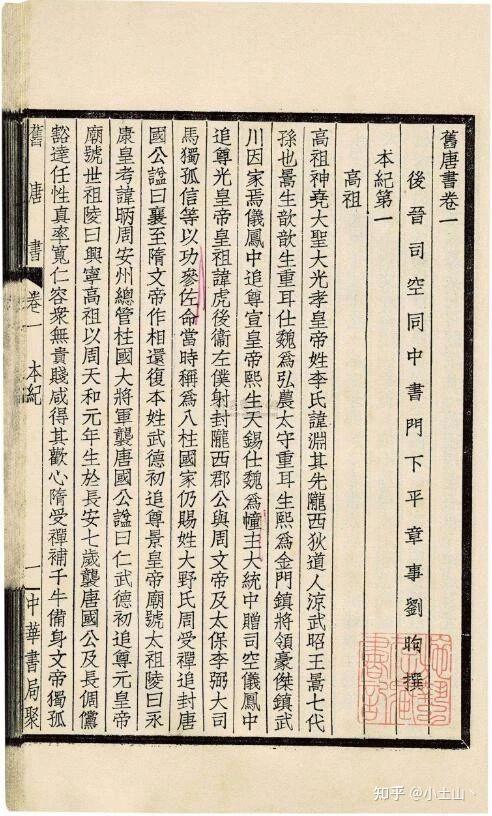 舊唐書卷一
後晉司空同中書門下平章事劉昫撰
本紀第一
高祖
高祖神堯大聖大光孝皇帝姓李氏諱淵其先隴西狄道人涼武昭王暠七代
孫也暠生歆歆生重耳仕魏爲弘農太守重耳生熙爲金門鎮將領豪傑鎮武
川因家焉儀鳳中追尊宣皇帝熙生天錫仕魏爲幢主大統中贈司空儀鳳中
追尊光皇帝皇祖諱虎後衞左僕射封隴西郡公與周文帝及太保李弼大司
馬獨孤信等以功參佐命當時稱爲八柱國家仍賜姓大野氏周受禪追封唐
國公諡曰襄至隋文帝作相還復本姓武德初追尊景皇帝廟號太祖陵曰永
康皇考諱昞周安州總管柱國大將軍襲唐國公諡曰仁武德初追尊元皇帝
廟號世祖陵曰興寧高祖以周天和元年生於長安七歲襲唐國公及長倜儻
豁達任性真率寬仁容衆無貴賤咸得其歡心隋受禪補千牛備身文帝獨孤
舊唐書 卷一 本紀 一 中華書局聚
知乎 @小土山